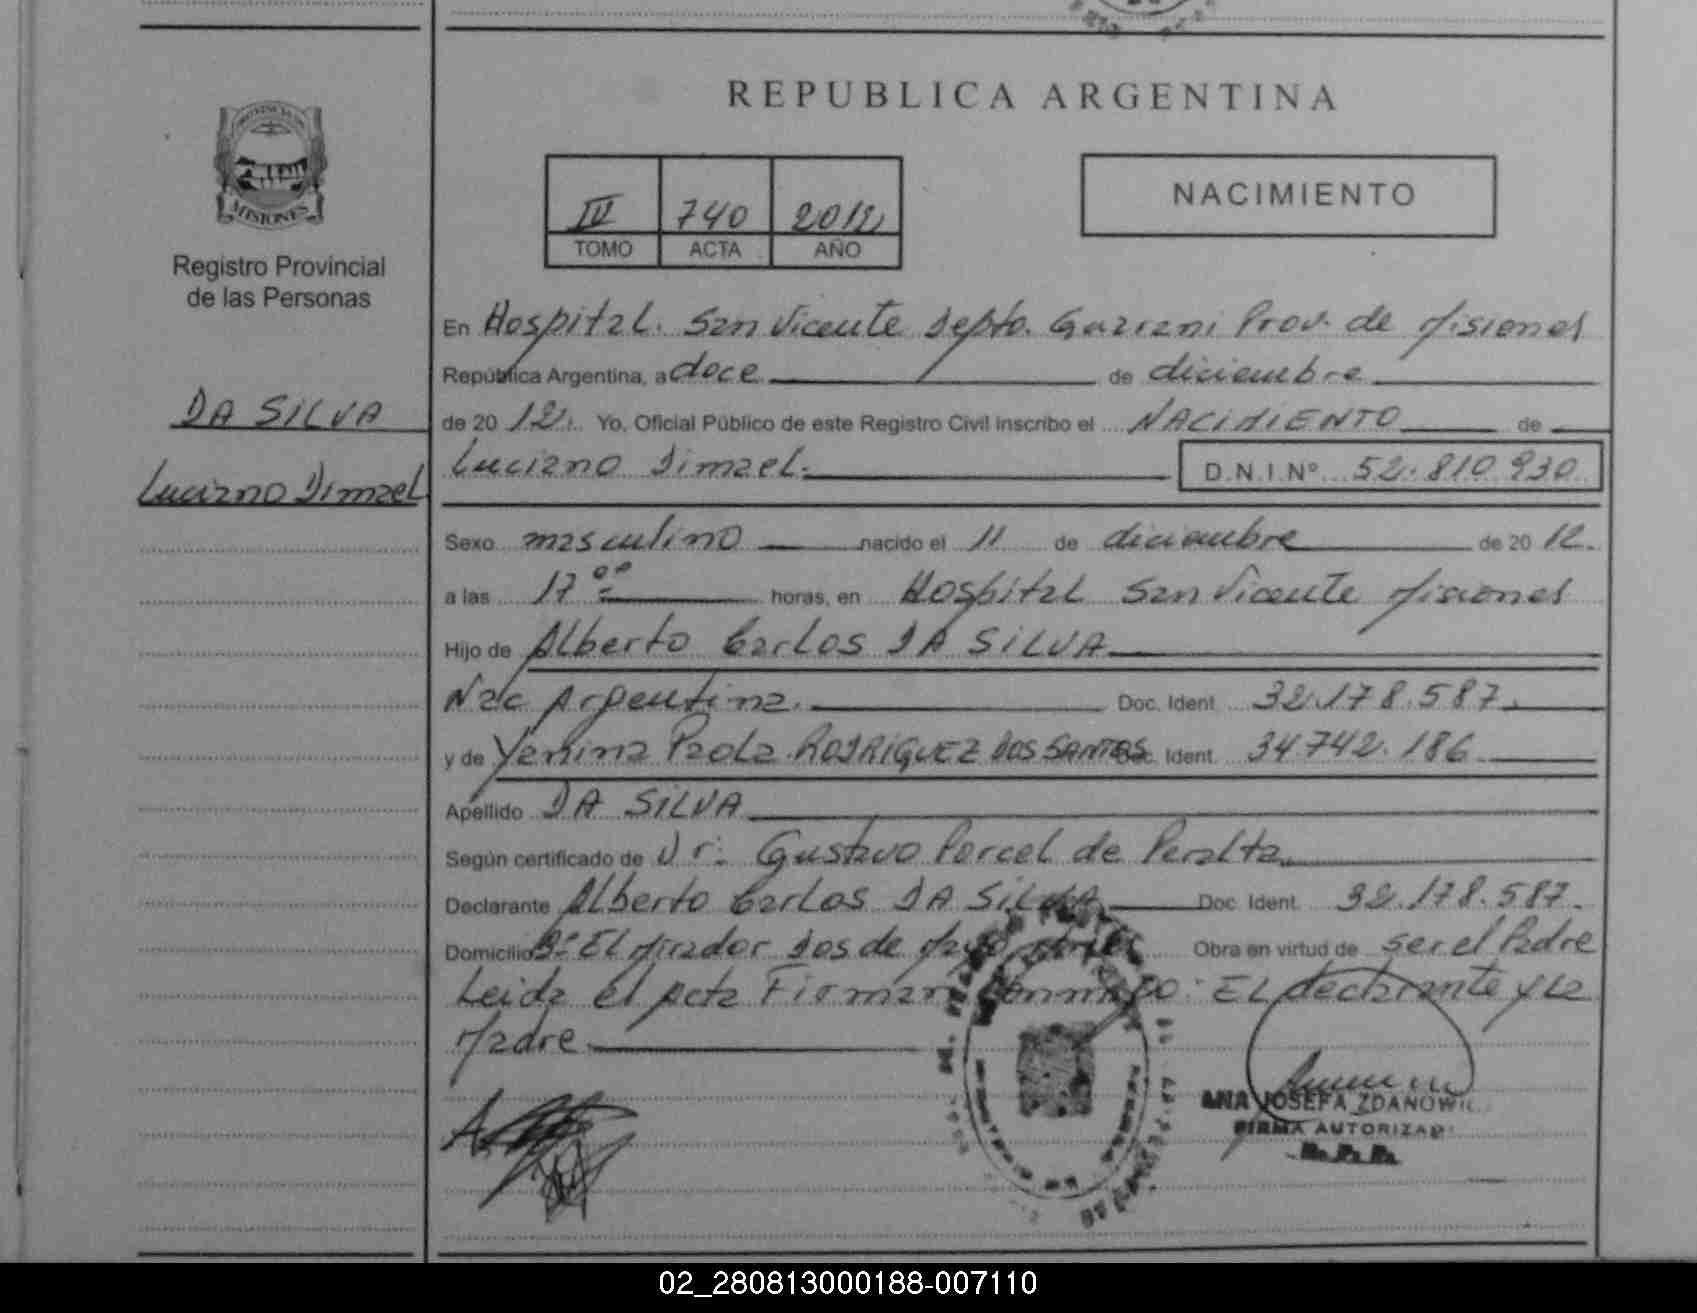 REPUBLICA ARGENTINA
PROVINCIA DE
MISIONES
Registro Provincial
de las Personas
DA SILVA
Luciano Dimael
IV 740 2012
TOMO ACTA AÑO
NACIMIENTO
En Hospital. San Vicente Depto. Guarani Prov. de Misiones
República Argentina, a doce de diciembre
de 20 12. Yo, Oficial Público de este Registro Civil inscribo el NACIMIENTO de
Luciano Dimael. D.N.I.Nº 52.810.930
Sexo masculino nacido el 11 de diciembre de 20 12.
a las 17 00 horas, en Hospital San Vicente Misiones
Hijo de Alberto Carlos DA SILVA
Nac Argentina. Doc. Ident. 32.178.587.
y de Yenina Paola RODRIGUEZ DOS SANTOS Doc. Ident. 34.742.186
Apellido DA SILVA
Según certificado de Dr: Gustavo Porcel de Peralta
Declarante Alberto Carlos DA SILVA Doc. Ident. 32.178.587.
Domicilio Bº El Mirador Dos de Mayo Obra en virtud de ser el Padre
Leida el Acta Firman Conmigo: El declarante y la
Madre
ANA JOSEFA ZDANOWI
FIRMA AUTORIZADA
02_280813000188-007110